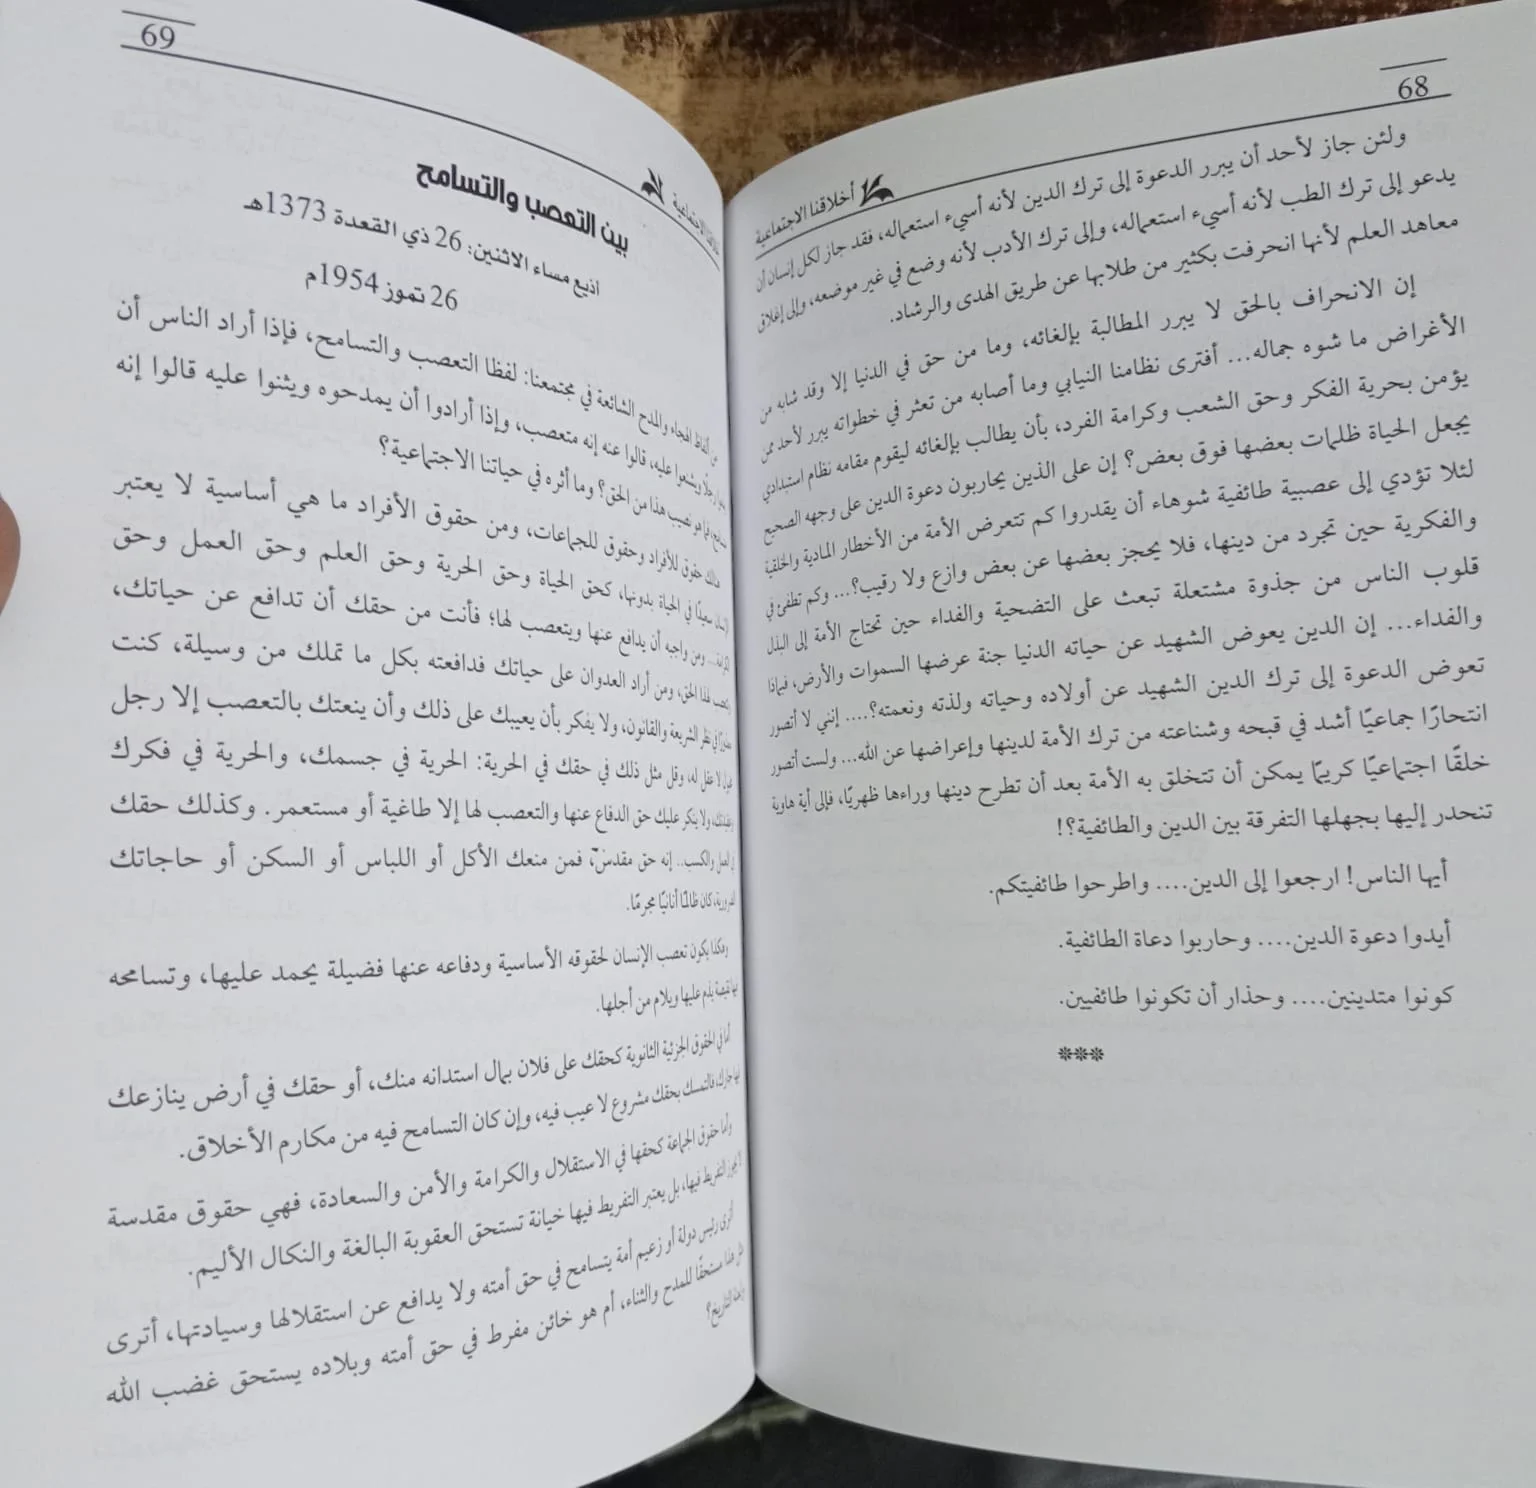 68
أخلاقنا الاجتماعية
ولئن جاز لأحد أن يبرر الدعوة إلى ترك الدين لأنه أسيء استعماله، فقد جاز لكل إنسان أن
يدعو إلى ترك الطب لأنه أسيء استعماله، وإلى ترك الأدب لأنه وضع في غير موضعه، وإلى إغلاق
معاهد العلم لأنها انحرفت بكثير من طلابها عن طريق الهدى والرشاد.
إن الانحراف بالحق لا يبرر المطالبة بإلغائه، وما من حق في الدنيا إلا وقد شابه من
الأغراض ما شوه جماله... أفترى نظامنا النيابي وما أصابه من تعثر في خطواته يبرر لأحد ممن
يؤمن بحرية الفكر وحق الشعب وكرامة الفرد، بأن يطالب بإلغائه ليقوم مقامه نظام استبدادي
يجعل الحياة ظلمات بعضها فوق بعض؟ إن على الذين يحاربون دعوة الدين على وجهه الصحيح
لئلا تؤدي إلى عصبية طائفية شوهاء أن يقدروا كم تتعرض الأمة من الأخطار المادية والخلقية
والفكرية حين تجرد من دينها، فلا يحجز بعضها عن بعض وازع ولا رقيب؟... وكم تطفئ في
قلوب الناس من جذوة مشتعلة تبعث على التضحية والفداء حين تحتاج الأمة إلى البذل
والفداء... إن الدين يعوض الشهيد عن حياته الدنيا جنة عرضها السموات والأرض، فبماذا
تعوض الدعوة إلى ترك الدين الشهيد عن أولاده وحياته ولذته ونعمته؟.... إنني لا أتصور
انتحارًا جماعيًا أشد في قبحه وشناعته من ترك الأمة لدينها وإعراضها عن الله... ولست أتصور
خلقًا اجتماعيًا كريمًا يمكن أن تتخلق به الأمة بعد أن تطرح دينها وراءها ظهريًا، فإلى أية هاوية
تنحدر إليها بجهلها التفرقة بين الدين والطائفية؟!
أيها الناس! ارجعوا إلى الدين.... واطرحوا طائفيتكم.
أيدوا دعوة الدين.... وحاربوا دعاة الطائفية.
كونوا متدينين.... وحذار أن تكونوا طائفيين.
***
69
الاجتماعية
بين التعصب والتسامح
اذيع مساء الاثنين: 26 ذي القعدة 1373هـ
26 تموز 1954م
من ألفاظ الهجاء والمدح الشائعة في مجتمعنا: لفظا التعصب والتسامح، فإذا أراد الناس أن
رجلًا ويشنعوا عليه، قالوا عنه إنه متعصب، وإذا أرادوا أن يمدحوه ويثنوا عليه قالوا إنه
فما هو نصيب هذا من الحق؟ وما أثره في حياتنا الاجتماعية؟
هنالك حقوق للأفراد وحقوق للجماعات، ومن حقوق الأفراد ما هي أساسية لا يعتبر
الإنسان سعيدًا في الحياة بدونها، كحق الحياة وحق الحرية وحق العلم وحق العمل وحق
الكرامة... ومن واجبه أن يدافع عنها ويتعصب لها؛ فأنت من حقك أن تدافع عن حياتك،
وتتعصب لهذا الحق، ومن أراد العدوان على حياتك فدافعته بكل ما تملك من وسيلة، كنت
معذورًا في نظر الشريعة والقانون، ولا يفكر بأن يعيبك على ذلك وأن ينعتك بالتعصب إلا رجل
لا عقل له، وقل مثل ذلك في حقك في الحرية: الحرية في جسمك، والحرية في فكرك
وعقيدتك، ولا ينكر عليك حق الدفاع عنها والتعصب لها إلا طاغية أو مستعمر. وكذلك حقك
في العمل والكسب.. إنه حق مقدس، فمن منعك الأكل أو اللباس أو السكن أو حاجاتك
الضرورية، كان ظالمًا أنانيًا مجرمًا.
وهكذا يكون تعصب الإنسان لحقوقه الأساسية ودفاعه عنها فضيلة يحمد عليها، وتسامحه
فيها نقيصة يذم عليها ويلام من أجلها.
أما في الحقوق الجزئية الثانوية كحقك على فلان بمال استدانه منك، أو حقك في أرض ينازعك
فيها جارك، فالتمسك بحقك مشروع لا عيب فيه، وإن كان التسامح فيه من مكارم الأخلاق.
وأما حقوق الجماعة كحقها في الاستقلال والكرامة والأمن والسعادة، فهي حقوق مقدسة
لا يجوز التفريط فيها، بل يعتبر التفريط فيها خيانة تستحق العقوبة البالغة والنكال الأليم.
أترى رئيس دولة أو زعيم أمة يتسامح في حق أمته ولا يدافع عن استقلالها وسيادتها، أترى
مثل هذا مستحقًا للمدح والثناء، أم هو خائن مفرط في حق أمته وبلاده يستحق غضب الله
التاريخ؟